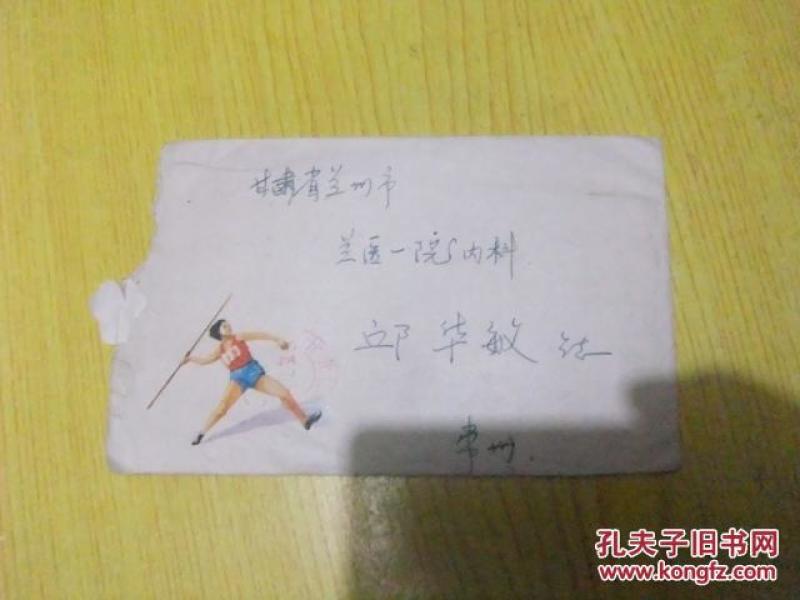 甘肃省兰州市
兰医一院内科
邱华敏
常州.
孔夫子旧书网
www.kongfz.com